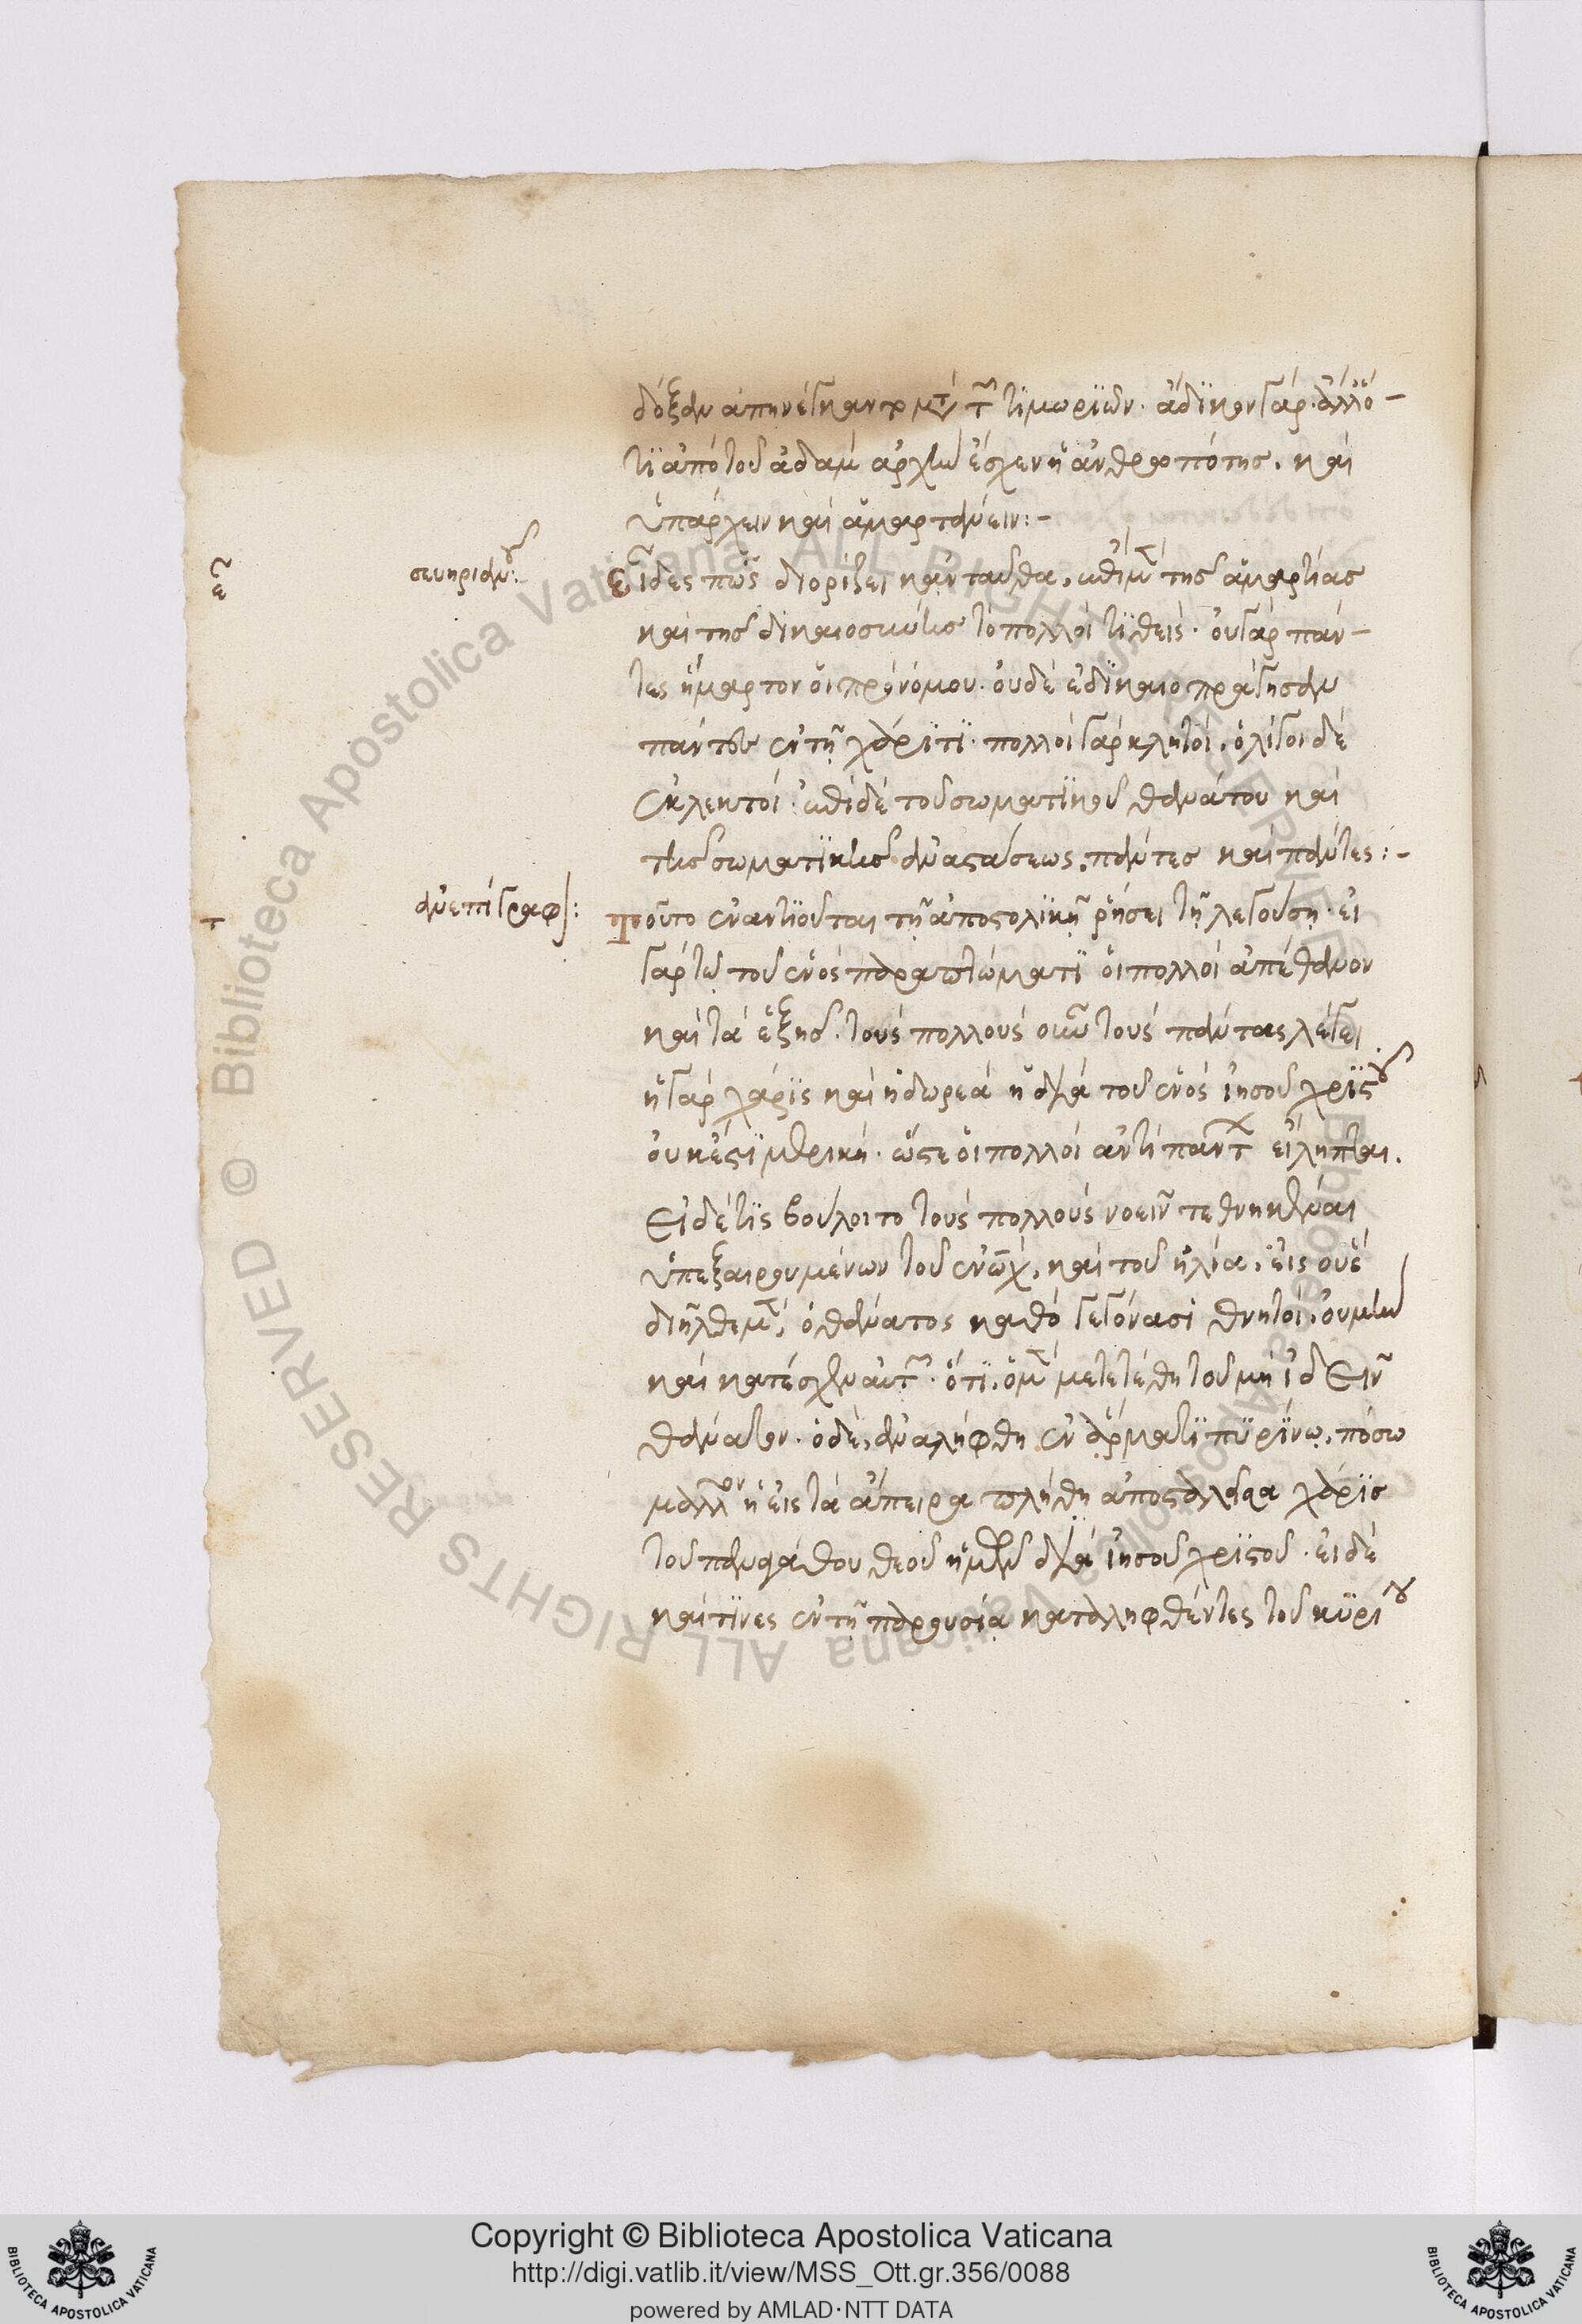 δόξαν ἀπηνέγκαντο μετὰ τῶν τιμωρϊῶν· ἄδϊκον γάρ· ἀλλ' ὅ-
τϊ ἀπὸ τοῦ ἀδὰμ ἀρχὴν ἔσχεν ἡ ἀνθρωπότης, καὶ
ὑπάρχειν καὶ ἁμαρτάνειν:-
σευηριανοῦ:
εἶδες πῶς διορίζει κἀνταῦθα, ἐπὶ μὲν τῆς ἁμαρτίας
καὶ τῆς δικαιοσύνης τὸ πολλοὶ τϊθείς· οὐ γὰρ πάν-
τες ἥμαρτον οἱ πρὸ νόμου· οὐδὲ ἐδικαιοπράγησαν
πάντες ἐν τῇ χάριτϊ· πολλοὶ γὰρ κλητοί, ὀλίγοι δὲ
ἐκλεκτοί· ἐπὶ δὲ τοῦ σωματϊκοῦ θανάτου καὶ
τῆς σωματϊκῆς ἀναστάσεως, πάντες καὶ πάντες:-
ἀνεπίγραφ:
τοῦτο ἐναντϊοῦται τῇ ἀποστολϊκῇ ῥήσει τῇ λεγούσῃ· εἰ
γὰρ τῷ τοῦ ἑνὸς παραπτώματϊ οἱ πολλοὶ ἀπέθανον
καὶ τὰ ἑξῆς· τοὺς πολλοὺς οὖν τοὺς πάντας λέγει
ἡ γὰρ χάρϊς καὶ ἡ δωρεὰ ἡ διὰ τοῦ ἑνὸς ἰησοῦ χρϊστοῦ
οὐκ ἔστϊ μερική· ὥστε οἱ πολλοὶ ἀντὶ πάντων εἴληπται.
εἰ δέ τϊς βούλοιτο τοὺς πολλοὺς νοεῖν τεθνηκέναι
ὑπεξαιρουμένων τοῦ ἐνὼχ, καὶ τοῦ ἠλία, εἰς οὓς
διῆλθε μὲν, ὁ θάνατος καθὸ γεγόνασι θνητοί, οὐ μὴν
καὶ κατέσχεν αὐτῶν· ὅτϊ, ὁ μὲν μετετέθη τοῦ μὴ ἰδεῖν
θάνατον· ὁ δὲ, ἀναλήφθη ἐν ἅρματϊ πϋρίνῳ, πόσω
μᾶλλον ἡ εἰς τὰ ἄπειρα πλήθη ἀποσταλεῖσα χάρϊς
τοῦ παναγάθου θεοῦ ἡμῶν διὰ ἰησοῦ χρϊστοῦ· εἰ δὲ
καί τϊνες ἐν τῇ παρουσίᾳ καταληφθέντες τοῦ κϋρίου